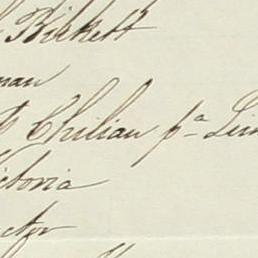 Birkett
man
Chilian pa Lim
ictoria
ctor